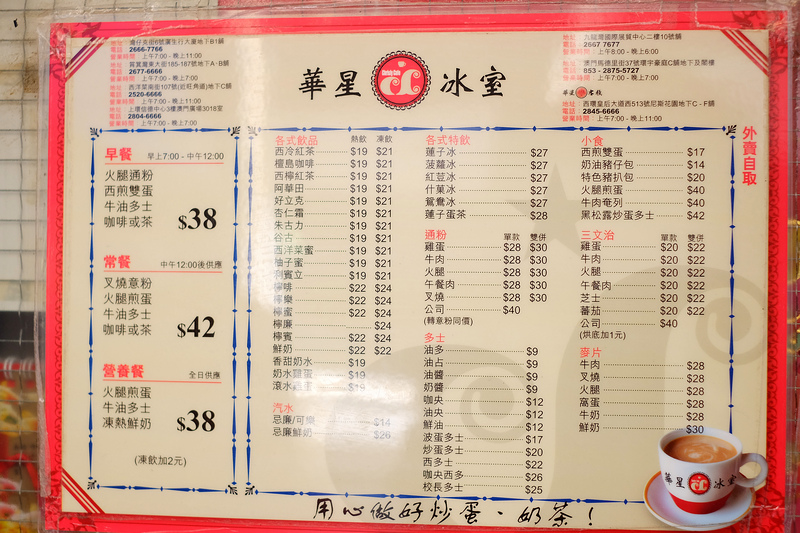 地址：灣仔克街6號廣生行大廈地下B1舖
電話：2666-7766
營業時間：上午7:00 - 晚上11:00
電話：2677-6666
營業時間：上午7:00 - 上午7:00
電話：2520-6666
營業時間：上午7:00 - 晚上11:00
地址：上環信德中心3樓澳門廣場301B室
電話：2804-6666
營業時間：上午7:00 - 上午7:00
華星冰室
地址：九龍灣國際展貿中心二樓10號舖
電話：2667 7677
營業時間：上午8:00 - 晚上6:00
電話：853 - 2875-5727
營業時間：上午7:00 - 上午7:00
地址：西環皇后大道西513號尼斯花園地下C - F舖
電話：2845-6666
營業時間：上午7:00 - 晚上11:00
外賣自取
早餐 早上7:00 - 中午12:00
火腿通粉
西煎雙蛋
牛油多士
咖啡或茶 $38
常餐 中午12:00後供應
叉燒意粉
火腿煎蛋
牛油多士
咖啡或茶 $42
營養餐 全日供應
火腿煎蛋
牛油多士
凍熱鮮奶 $38
(凍飲加2元)
各式飲品 熱飲 凍飲
西冷紅茶 $19 $21
檀島咖啡 $19 $21
西檸紅茶 $19 $21
阿華田 $19 $21
好立克 $19 $21
杏仁霜 $19 $21
朱古力 $19 $21
谷古 $19 $21
西洋菜蜜 $19 $21
柚子蜜 $19 $21
利賓立 $19 $21
檸啡 $22 $24
檸樂 $22 $24
檸蜜 $22 $24
檸廉 $24
檸賓 $22 $24
鮮奶 $22 $22
香甜奶水 $19
奶水雞蛋 $19
滾水雞蛋 $19
汽水
忌廉/可樂 $14
忌廉鮮奶 $26
各式特飲
蓮子冰 $27
菠蘿冰 $27
紅荳冰 $27
什菓冰 $27
鴛鴦冰 $27
蓮子蛋茶 $28
通粉 單款 雙併
雞蛋 $28 $30
牛肉 $28 $30
火腿 $28 $30
午餐肉 $28 $30
叉燒 $28 $30
公司 $40
(轉意粉同價)
多士
油多 $9
油占 $9
油醬 $9
奶醬 $9
咖央 $12
油央 $12
鮮油 $12
波蛋多士 $17
炒蛋多士 $20
西多士 $22
咖央西多 $26
校長多士 $25
小食
西煎雙蛋 $17
奶油豬仔包 $14
特色豬扒包 $20
火腿煎蛋 $40
牛肉奄列 $40
黑松露炒蛋多士 $42
三文治 單款 雙併
雞蛋 $20 $22
牛肉 $20 $22
火腿 $20 $22
午餐肉 $20 $22
芝士 $20 $22
蕃茄 $20 $22
公司 $40
(烘底加1元)
麥片
牛肉 $28
叉燒 $28
火腿 $28
窩蛋 $28
牛奶 $28
鮮奶 $30
華星冰室
用心做好炒蛋、奶茶！